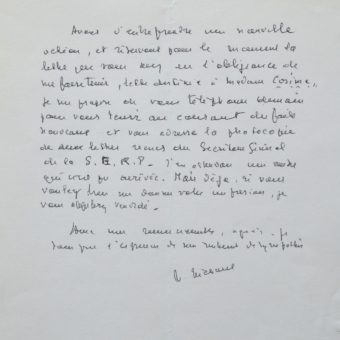 Avant d'entreprendre une nouvelle
action, et réservant pour le moment la
lettre que vous avez eu l'obligeance de
me faire tenir, lettre destinée à Madame Cosima,
je me propose de vous téléphoner demain
pour vous tenir au courant des faits
nouveaux et vous adresse la photocopie
de deux lettres reçues du Secrétaire Général
de la S.E.R.P. J'en attendais une autre
qui n'est pas arrivée. Mais déjà, si vous
vouliez bien me donner votre impression, je
vous
Avec mes remerciements, agréez, je
vous prie, l'expression de mes sentiments